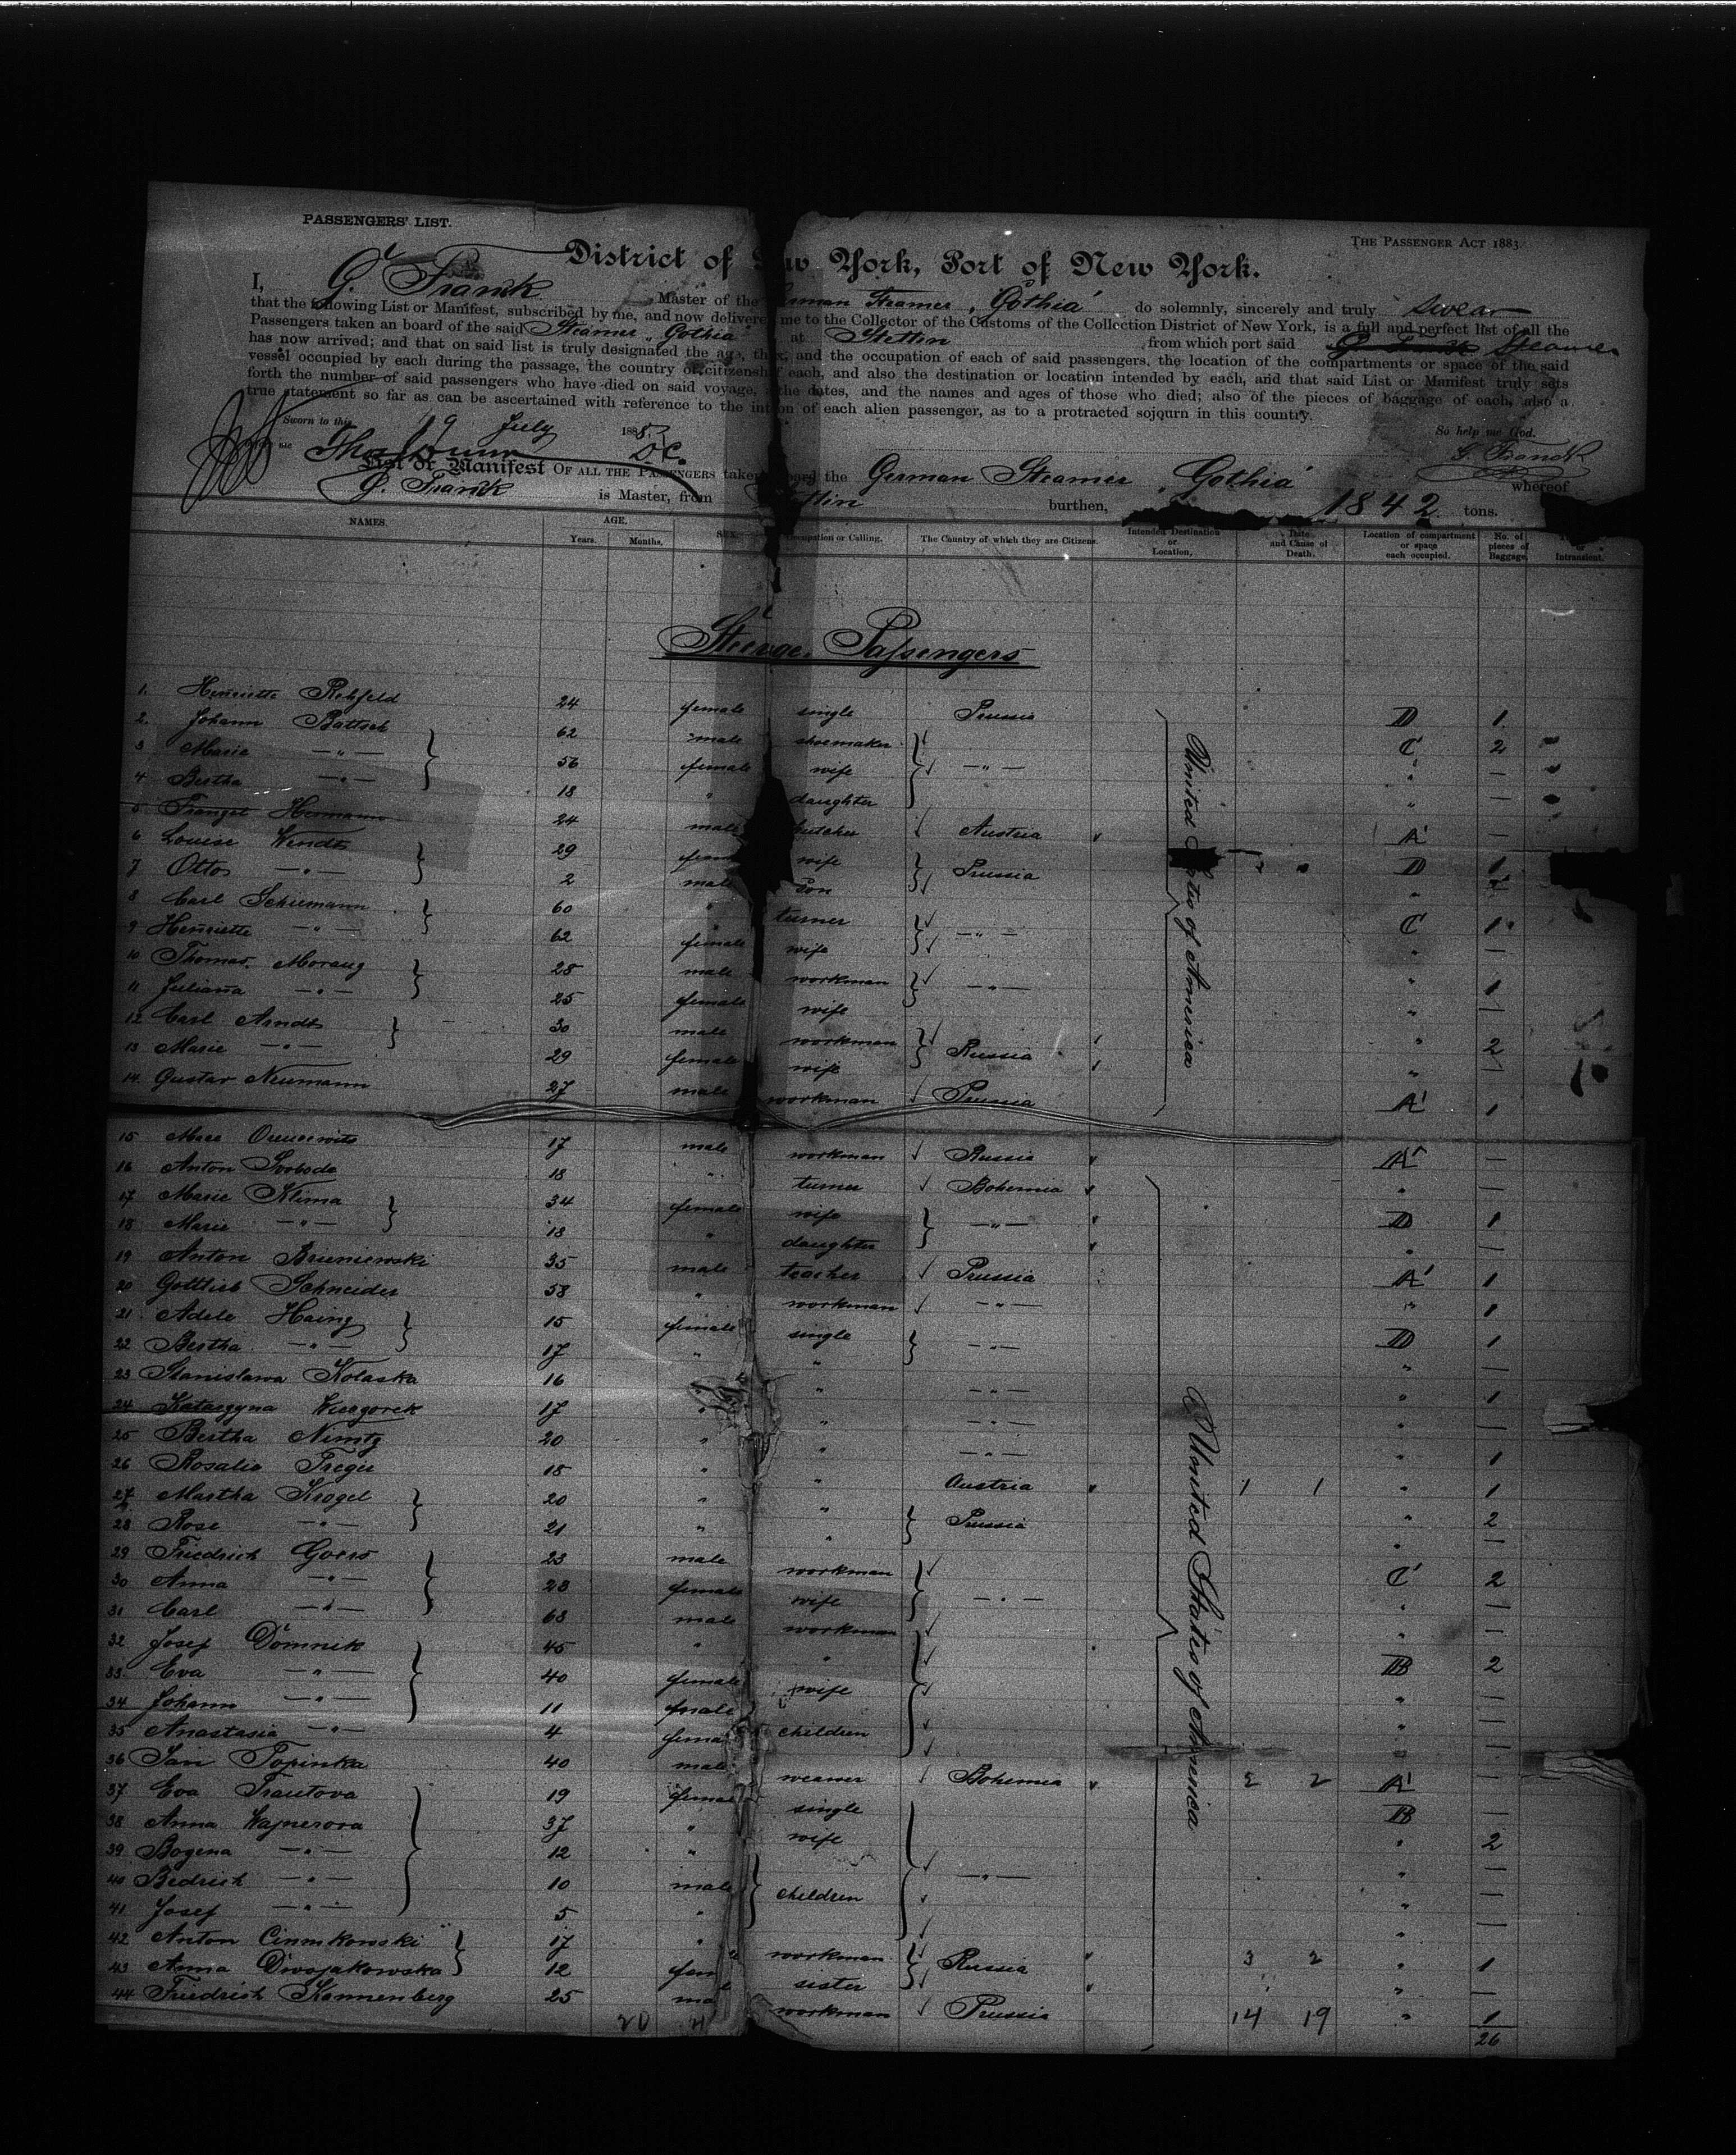 PASSENGERS' LIST.
THE PASSENGER ACT 1883.
District of New York, Port of New York.
I, G. Franck Master of the German Steamer "Gothia" do solemnly, sincerely and truly swear
that the following List or Manifest, subscribed by me, and now delivered me to the Collector of the Customs of the Collection District of New York, is a full and perfect list of all the
Passengers taken an board of the said Steamer "Gothia" at Stettin from which port said Steamer
has now arrived; and that on said list is truly designated the age, the sex, and the occupation of each of said passengers, the location of the compartments or space of the said
vessel occupied by each during the passage, the country of citizenship of each, and also the destination or location intended by each, and that said List or Manifest truly sets
forth the number of said passengers who have died on said voyage, the dates, and the names and ages of those who died; also of the pieces of baggage of each, also a
true statement so far as can be ascertained with reference to the intention of each alien passenger, as to a protracted sojourn in this country.
Sworn to this 19 July 188
So help me God.
G. Franck
D.C.
List or Manifest OF ALL THE PASSENGERS taken board the German Steamer "Gothia" whereof
G. Franck is Master, from Stettin burthen, 1842 tons.
NAMES. AGE. Years. Months. SEX. Occupation or Calling. The Country of which they are Citizens. Intended Destination or Location, Date and Cause of Death. Location of compartment or space each occupied. No. of pieces of Baggage. or Intransient.
Steerage Passengers
1. Henriette Rehfeld 24 female single Prussia D 1
2. Johann Battsch 62 male shoemaker C 2
3 Marie —"— 56 female wife —"— " —
4 Bertha —"— 18 " daughter " —
5 Hermann 24 male butcher Austria A —
6 Louise Wendt 29 fem wife Prussia D 1
7 Otto —"— 2 male son " —
8 Carl Schiemann 60 " turner —"— C 1
9 Henriette —"— 62 female wife " —
10 Thomas Morang 28 male workman —"— " 1
11 Juliana —"— 25 female wife " —
12 Carl Arndt 30 male workman Russia " 2
13 Marie —"— 29 female wife " —
14. Gustav Neumann 27 male workman Prussia A 1
United States of America
15 17 male workman Russia A —
16 Anton Svoboda 18 " turner Bohemia " —
17 Marie Klima 34 female wife —"— D 1
18 Marie —"— 18 " daughter " —
19 Anton 35 male teacher Prussia A 1
20 Gottlieb Schneider 58 " workman —"— " 1
21 Adele Haing 15 female single —"— D 1
22 Bertha —"— 17 " " " —
23 Stanislawa Kolaska 16 " —"— " 1
24 Katarzyna 17 " " —"— " —
25 Bertha Nimtz 20 " " —"— " 1
26 Rosalie Treger 18 " " Austria 1 1 " 1
27 Martha Krogel 20 " " Prussia " 2
28 Rose —"— 21 " " " —
29 Friedrich Goers 23 male workman C 2
30 Anna —"— 23 female wife —"— " —
31 Carl —"— 68 male workman " —
32 Josef Domnik 45 " " B 2
33 Eva —"— 40 female wife " —
34 Johann —"— 11 male " —
35 Anastasia —"— 4 fema children " —
36 Jan Topinka 40 male weaver Bohemia 2 2 A —
37 Eva Trautova 19 female single B —
38 Anna Wajnerova 37 " wife " 2
39 Bogena —"— 12 " —"— " —
40 Bedrich —"— 10 male children " —
41 Josef —"— 5 " " —
42 Anton Cinmkowski 17 " workman Russia 3 2 " 1
43 Anna 12 fem sister " —
44 Friedrich Kannenberg 25 ma workman Prussia 14 19 " 1
United States of America
20 21
26